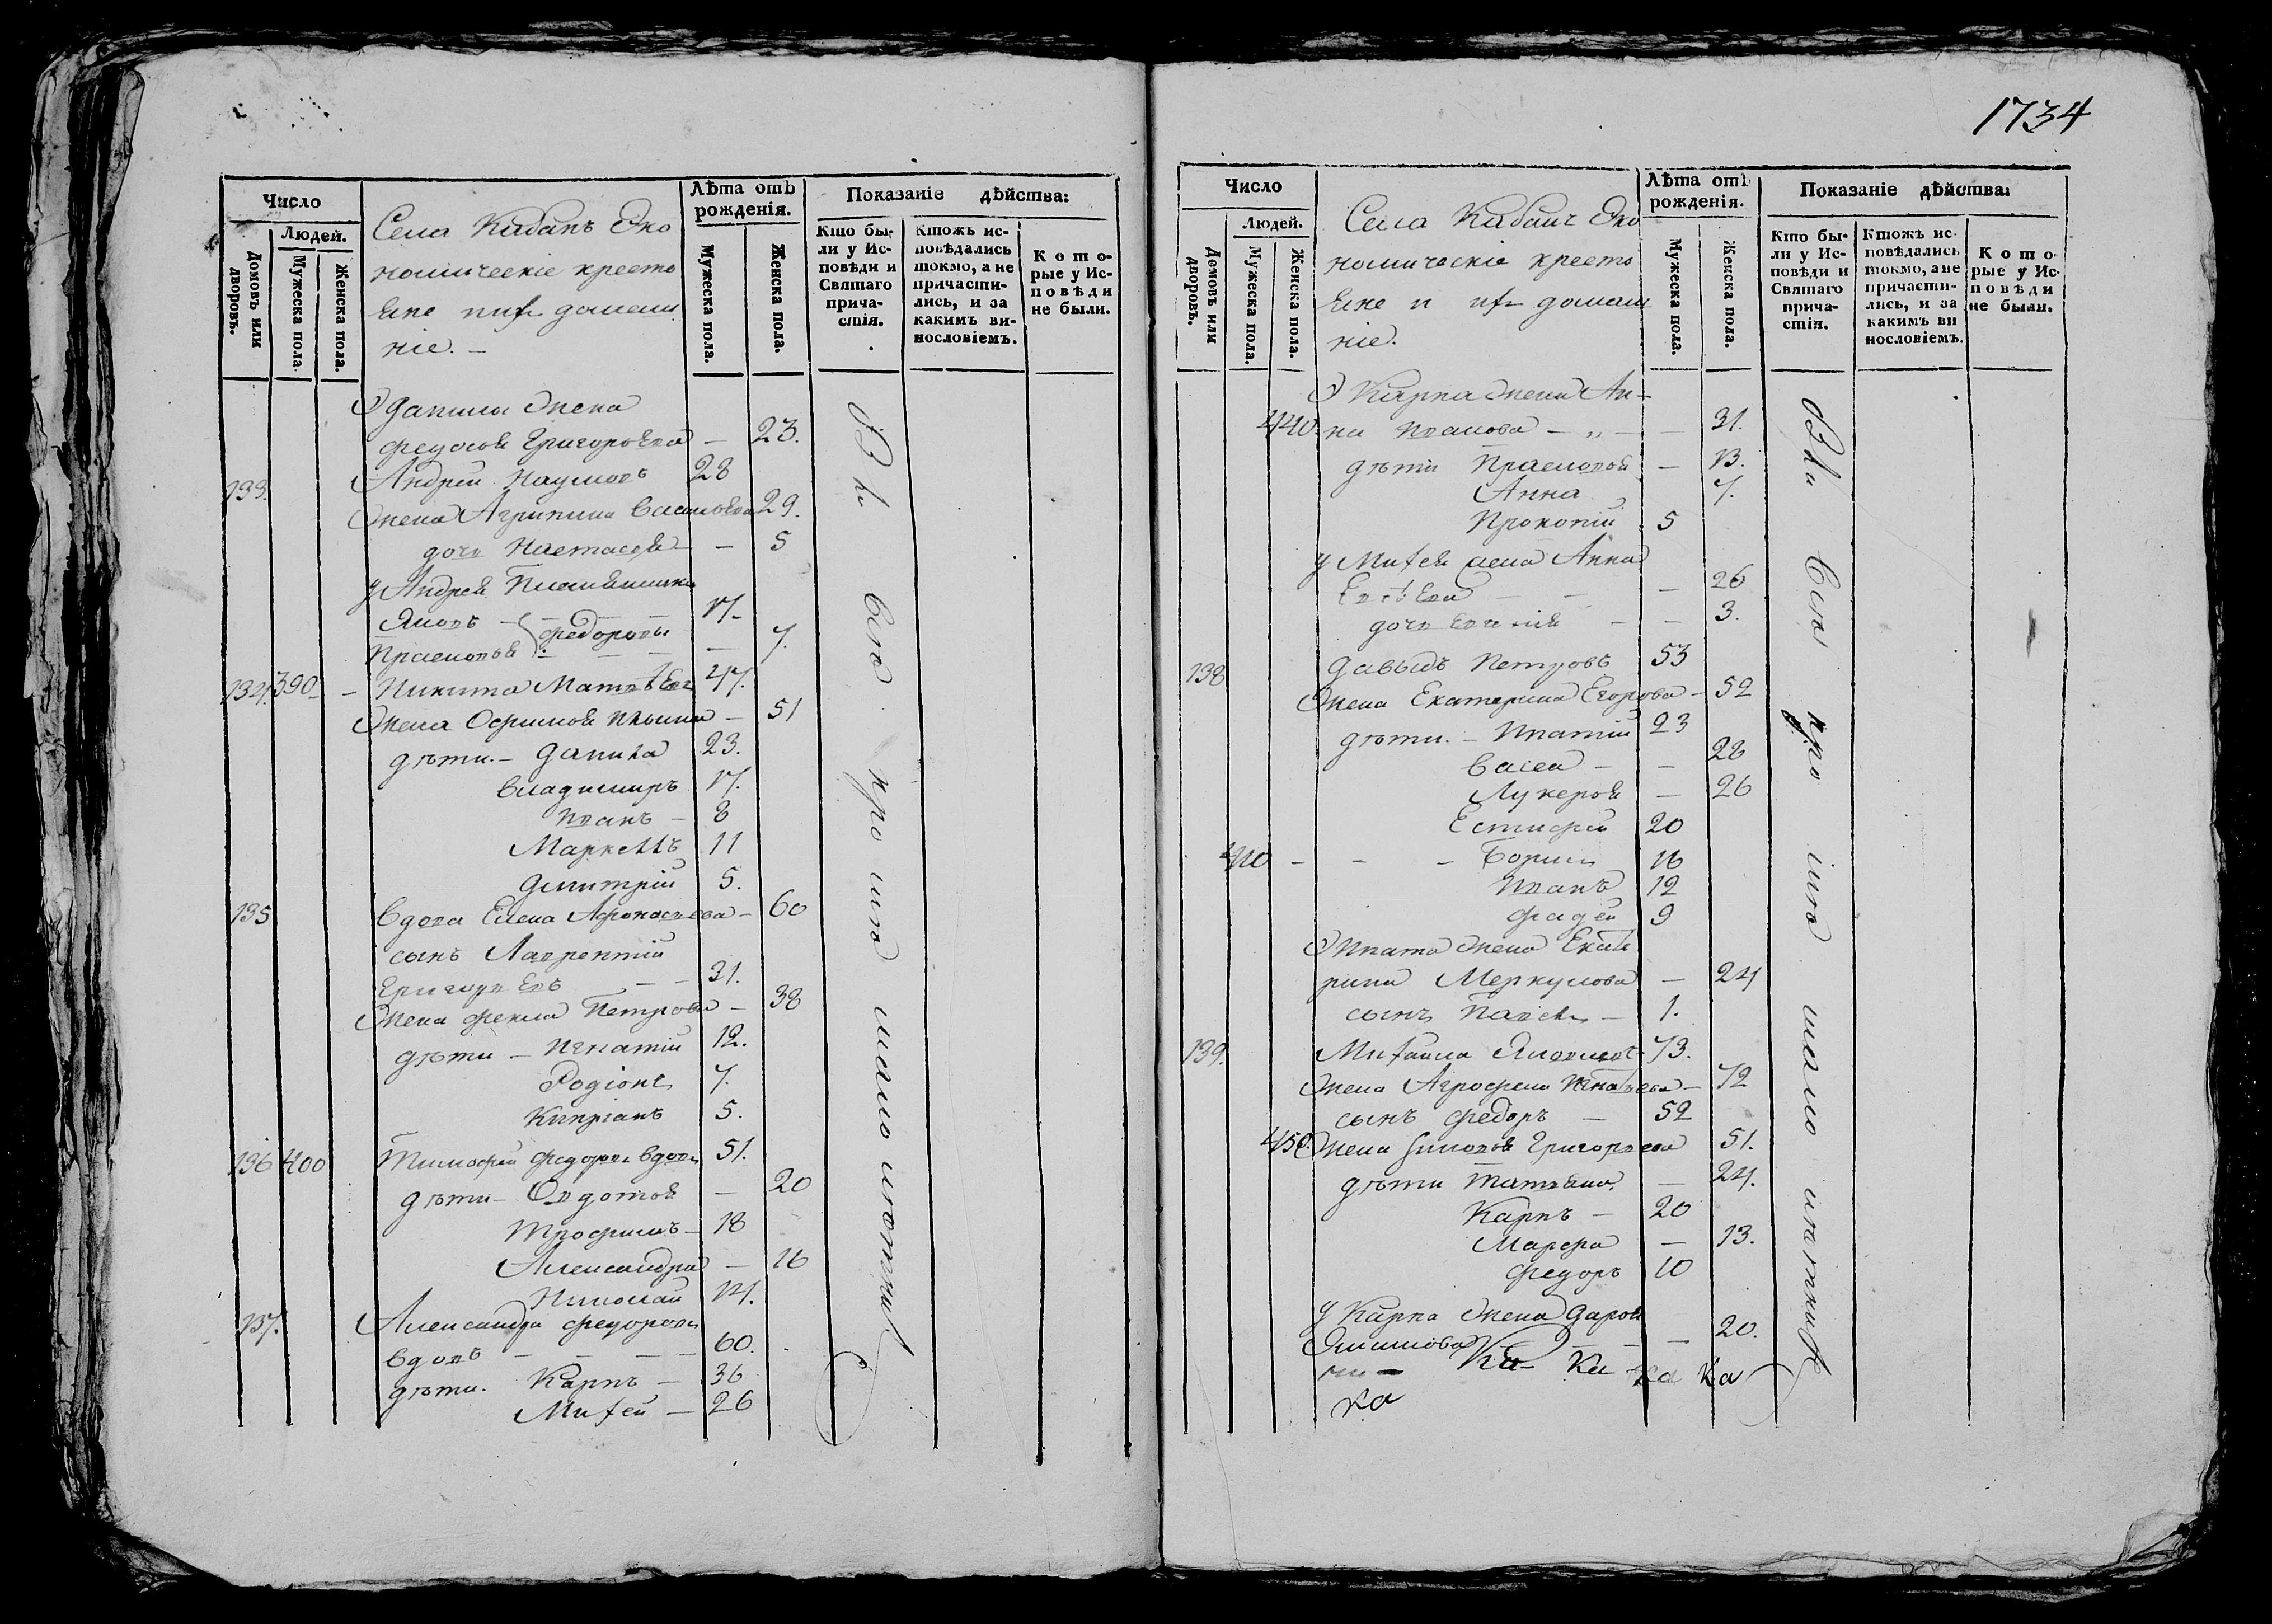 Число
Людей.
Домовъ или дворовъ.
Мужеска пола.
Женска пола.
Села Кабанъ Эко
номическіе кресто
яне и ихъ домаш
ніе. —
Лѣта отъ рожденія.
Мужеска пола.
Женска пола.
Показаніе дѣйства:
Кто бы-
ли у Ис-
повѣди и
Святаго
прича-
стія.
Ктожъ ис-
повѣдались
токмо, а не
причасти-
лись, и за
какимъ ви-
нословіемъ.
К о т о-
рые у Ис-
п о в ѣ д и
не были.
У Данилы жена
Федосья Григорьева — 23.
133. Андрей Наумовъ 28
Жена Агрипина Васильева 29.
дочь Настасья — 5
у Андрея
Яковъ — 17.
Прасковья Федоровы — 7.
134. 390 — Никита Матвѣевъ 47.
Жена Офимья Ильина — 51
дѣти. — Данила 23.
Владимиръ 17.
Иванъ — 8
Маркеллъ 11
Дмитрій 5.
135 Вдова Елена Афонасьева — 60
сынъ Лаврентій
Григорьевъ — — 31.
Жена Фекла Петрова — 38
дѣти — Игнатій 12.
Родіонъ 7.
Кипріанъ 5.
136 400 Тимофей Федоровъ вдовъ 51.
дѣти — Овдотья — 20
Трофимъ — 18
Александра — 16
Николай 14.
137. Александръ Федоровъ
вдовъ — — — 60.
дѣти. Карпъ — 36
Михей — 26
Всѣ
1734
Число
Людей.
Домовъ или дворовъ.
Мужеска пола.
Женска пола.
Села Кабанъ Эко
номическіе кресто
яне и ихъ домаш
ніе.
Лѣта отъ рожденія.
Мужеска пола.
Женска пола.
Показаніе дѣйства:
Кто бы-
ли у Ис-
повѣди и
Святаго
прича-
стія.
Ктожъ ис-
повѣдались
токмо, а не
причасти-
лись, и за
какимъ ви
нословіемъ.
К о т о-
рые у Ис-
п о в ѣ д и
не были.
У Карпа жена Ан-
440. на Иванова — „ — — 31.
дѣти Прасковья — 13.
Анна 7.
Прокопій 5
у Михея жена Анна
— 26
дочь — — 3.
138 Давыдъ Петровъ 53
Жена Екатерина Егорова — 52
дѣти. — Ипатій 23
Васса — — 28
Лукерья — 26
Естифей 20
410 — — — Борисъ 16
Иванъ 12
Фадей 9
У Ипата жена Екате
рина Меркулова — 24
сынъ — 1.
139. Михайла Яковлевъ 73.
Жена Агрофена Игнатьева — 72
сынъ Федоръ — 52
450. Жена Зиновья Григорьева 51.
дѣти Татьяна — 24.
Карпъ — 20
Марфа — 13.
Федоръ 10
у Карпа жена Дарья
— — 20.
Ка Ка Ка
ка
Всѣ